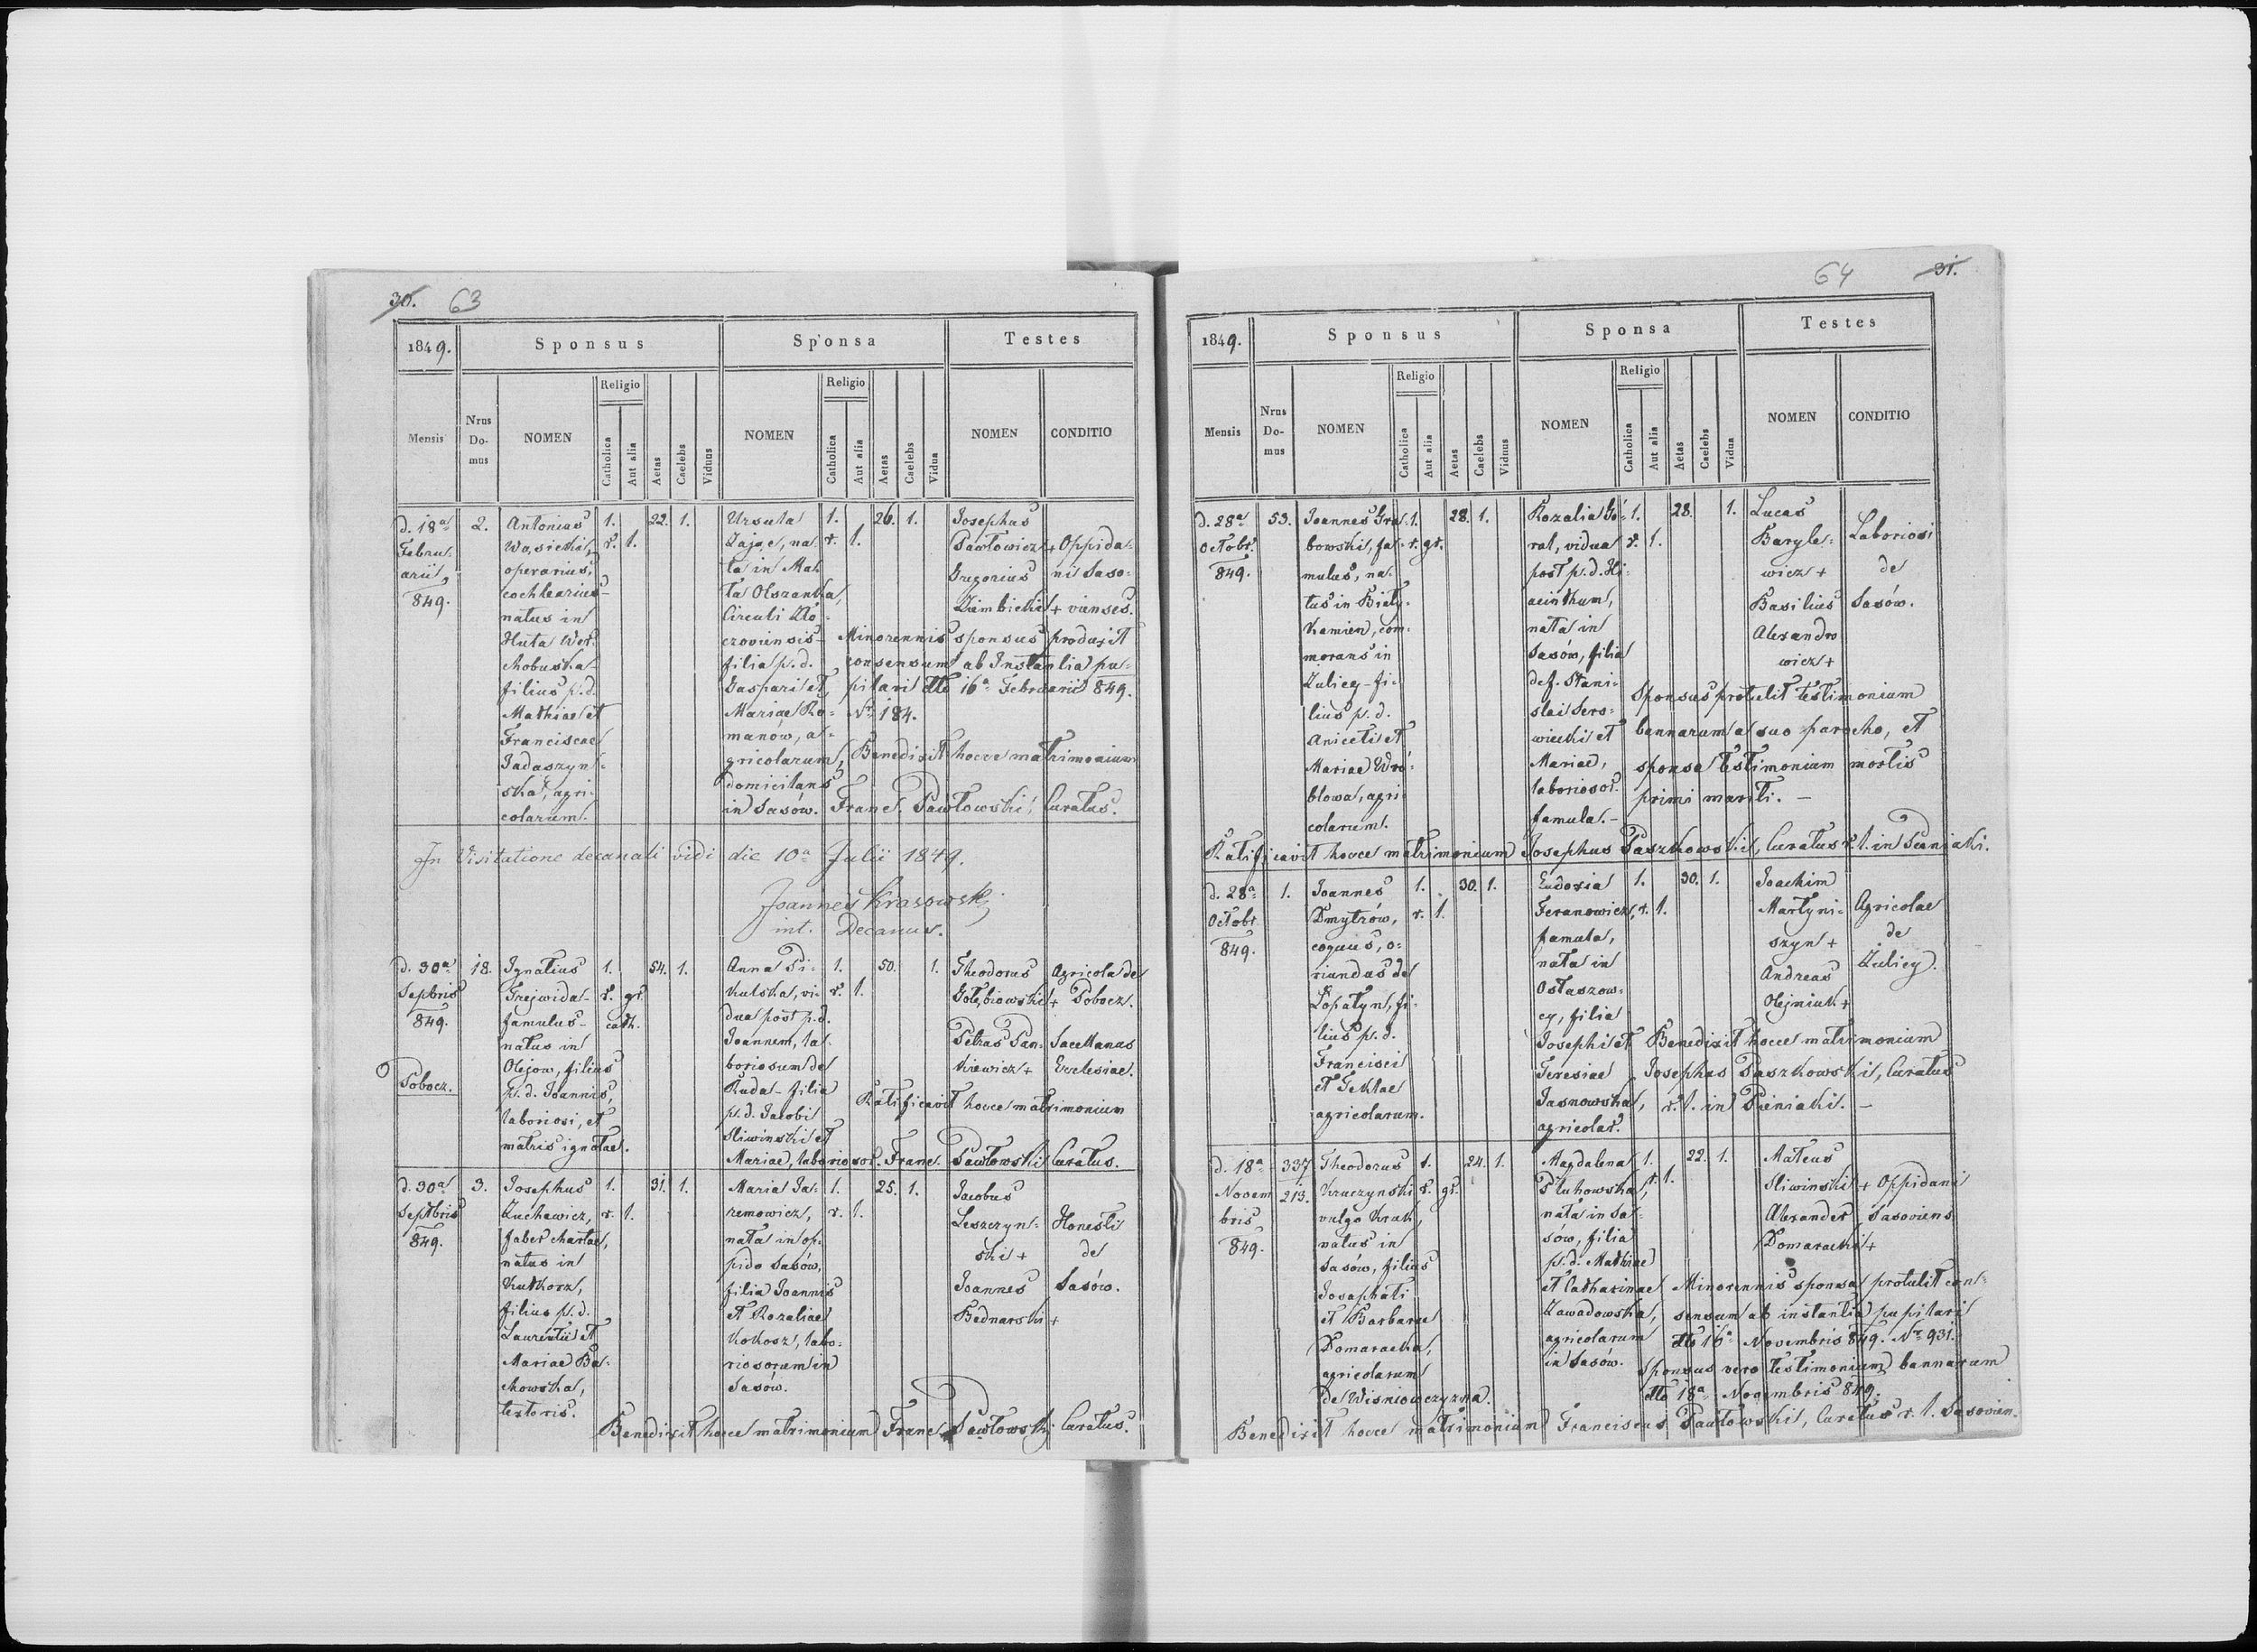 30. 63
1849.
Sponsus
Sponsa
Testes
Mensis
Nrus Do- mus
NOMEN
Religio
Catholica
Aut alia
Aetas
Caelebs
Viduus
NOMEN
Religio
Catholica
Aut alia
Aetas
Caelebs
Vidua
NOMEN
CONDITIO
d. 18a
Febru-
arii,
849.
2.
Antonius
Wąsicki,
operarius,
cochlearius
natus in
Huta Wer-
chobuska-
filius p. d.
Mathiae et
Franciscae
Jadaszyn-
ska, agri-
colarum.
1.
r. l.
22. 1.
Ursula
Zając, na-
ta in Mal-
ta Olszanka,
Circuli Zło-
czoviensis-
filia p. d.
Gaspari et
Mariae Ro-
manów, a-
gricolarum,
domicilans
in Sasów.
1.
r. l.
26. 1.
Josephus
Pawłowicz +
Gregorius
Ziembicki +
Oppida-
ni Saso-
vienses.
Minorennis sponsus produxit
consensum ab Instantia pu-
pilari dto 16a Februarii 849.
Nr. 184.
Benedixit hocce matrimonium
Franc. Pawłowski, Curatus.
In Visitatione decanali vidi die 10a Julii 1849.
Joannes Krasowski
int. Decanus.
d. 30a
Sepbris
849.
Pobocz.
18.
Ignatius
Grejwida-
famulus-
natus in
Olejow, filius
p. d. Joannis,
laboriosi, et
matris ignotae.
1.
r. gr.
cath.
54. 1.
Anna Pi-
kulska, vi-
dua post p. d.
Joannem, la-
boriosum de
Ruda- filia
p. d. Jacobi
Sliwinski et
Mariae, laboriosor.
1.
r. l.
50. 1.
Theodorus
Gołębiowski +
Petras Pan-
kiewicz +
Agricola de
Pobocz.
Sacellanus
Ecclesiae.
Ratificavit hocce matrimonium
Franc. Pawłowski Curatus.
d. 30a
Septbris
849.
3.
Josephus
Zuchewicz,
faber chartae,
natus in
Kutkorz,
filius p. d.
Laurentii et
Mariae Ba-
chowska,
textoris.
1.
r. l.
31. 1.
Maria Ja-
remowicz,
nata in op-
pido Sasów,
filia Joannis
et Rozaliae
Kokosz, labo-
riosorum in
Sasów.
1.
r. l.
25. 1.
Jacobus
Leszczyn-
ski +
Joannes
Bednarski +
Honesti
de
Sasów.
Benedixit hocce matrimonium Franc. Pawłowski Curatus.
64 31.
1849.
Sponsus
Sponsa
Testes
Mensis
Nrus Do- mus
NOMEN
Religio
Catholica
Aut alia
Aetas
Caelebs
Viduus
NOMEN
Religio
Catholica
Aut alia
Aetas
Caelebs
Vidua
NOMEN
CONDITIO
d. 28a
Octobr.
849.
53.
Joannes Gra-
bowski, fa-
mulus, na-
tus in Biały-
kamien, com-
morans in
Zulicy- fi-
lius p. d.
Aniceti et
Mariae Wró-
blowa, agri-
colarum.
1.
r. gr.
28. 1.
Rozalia Gó-
ral, vidua
post p. d. Hi-
acinthum,
nata in
Sasów, filia
def. Stani-
slai Sero-
wiecki et
Mariae,
laboriosor.
famula.-
1.
r. l.
28. 1.
Lucas
Baryle-
wicz +
Basilius
Alexandro
wicz +
Laboriosi
de
Sasów.
Sponsus protulit testimonium
bannarum a suo parocho, et
sponsa testimonium mortis
primi mariti.-
Ratificavit hocce matrimonium Josephus Paszkowski, Curatus r. l. in Pieniaki.
d. 28a
Octobr.
849.
1.
Joannes
Dmytrów,
coquus, o-
riundus de
Łopatyn, fi-
lius p. d.
Francisci
et Teklae
agricolarum.
1.
r. l.
30. 1.
Eudoxia
Feranowicz,
famula,
nata in
Ostaszow-
cy, filia
Josephi et
Teresiae
Jasnowska,
agricolar.
1.
r. l.
30. 1.
Joachim
Martyni-
szyn +
Andreas
Olejniuk +
Agricolae
de
Zulicy.
Benedixit hocce matrimonium
Josephus Paszkowski, Curatus
r. l. in Pieniaki.-
d. 18a
Novem
bris
849.
337.
213.
Theodorus
Kruczynski
vulgo Kruk,
natus in
Sasów, filius
Josaphati
et Barbarae
Domaracka,
agricolarum
de Wisniowczyzna.
1.
r. gr.
24. 1.
Magdalena
Pluhowska,
nata in Sa-
sów, filia
p. d. Mathiae
et Catharinae
Zawadowska,
agricolarum
in Sasów.
1.
r. l.
22. 1.
Mateus
Sliwinski +
Alexander
Domaracki +
Oppidani
Sasoviens.
Minorennis sponsa protulit con-
sensum ab instantia pupilari
dto 16a Novembris 849. Nr. 931.
Sponsus vero testimonium bannarum
dto 18a Novembris 849.
Benedixit hocce matrimonium Franciscus Pawłowski, Curatus r. l. Sasovien.